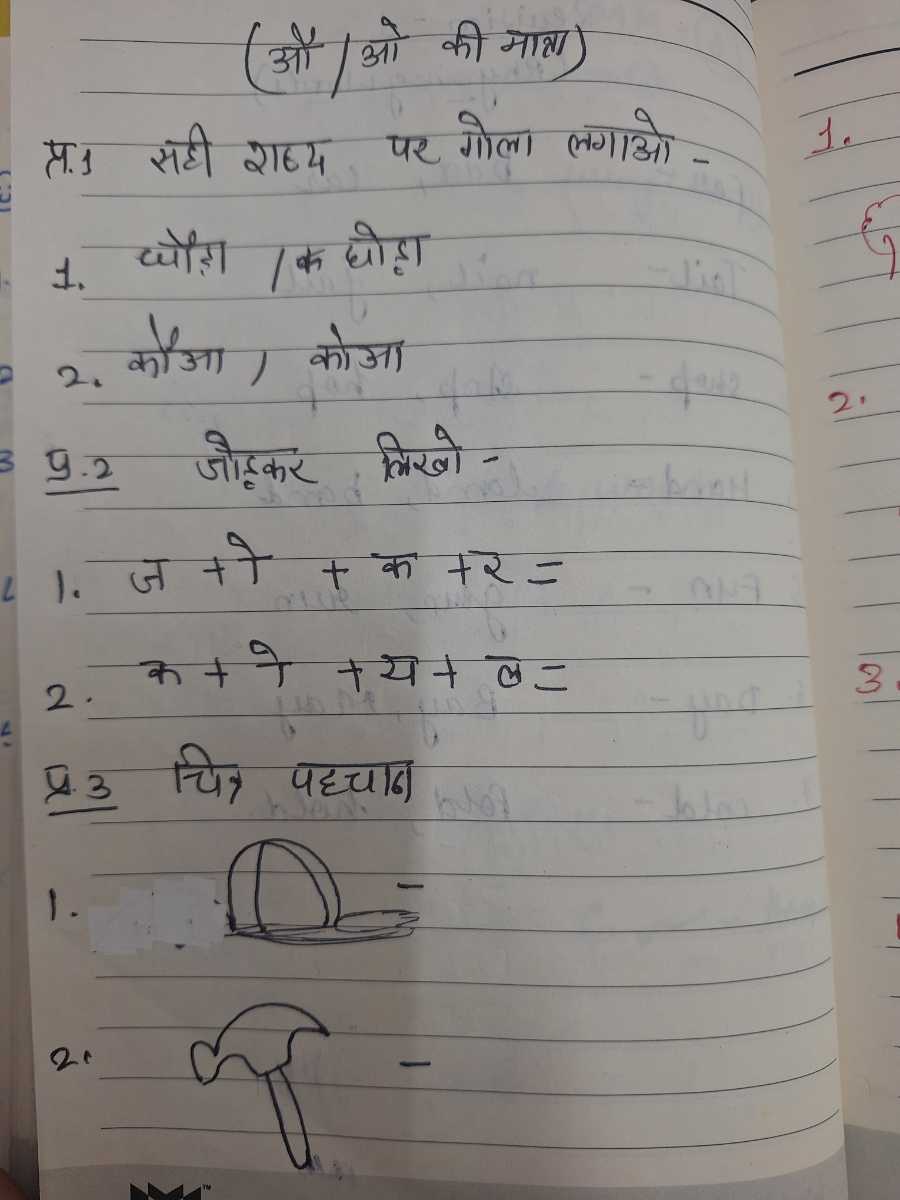 (औ / ओ की मात्रा)
प्र.1 सही शब्द पर गोला लगाओ -
1. घौड़ा / घोड़ा
2. कौआ , कोआ
प्र.2 जोड़कर लिखो -
1. ज + ो + क + र =
2. क + ो + य + ल =
प्र.3 चित्र पहचान
1. -
2. -
1.
2.
3.